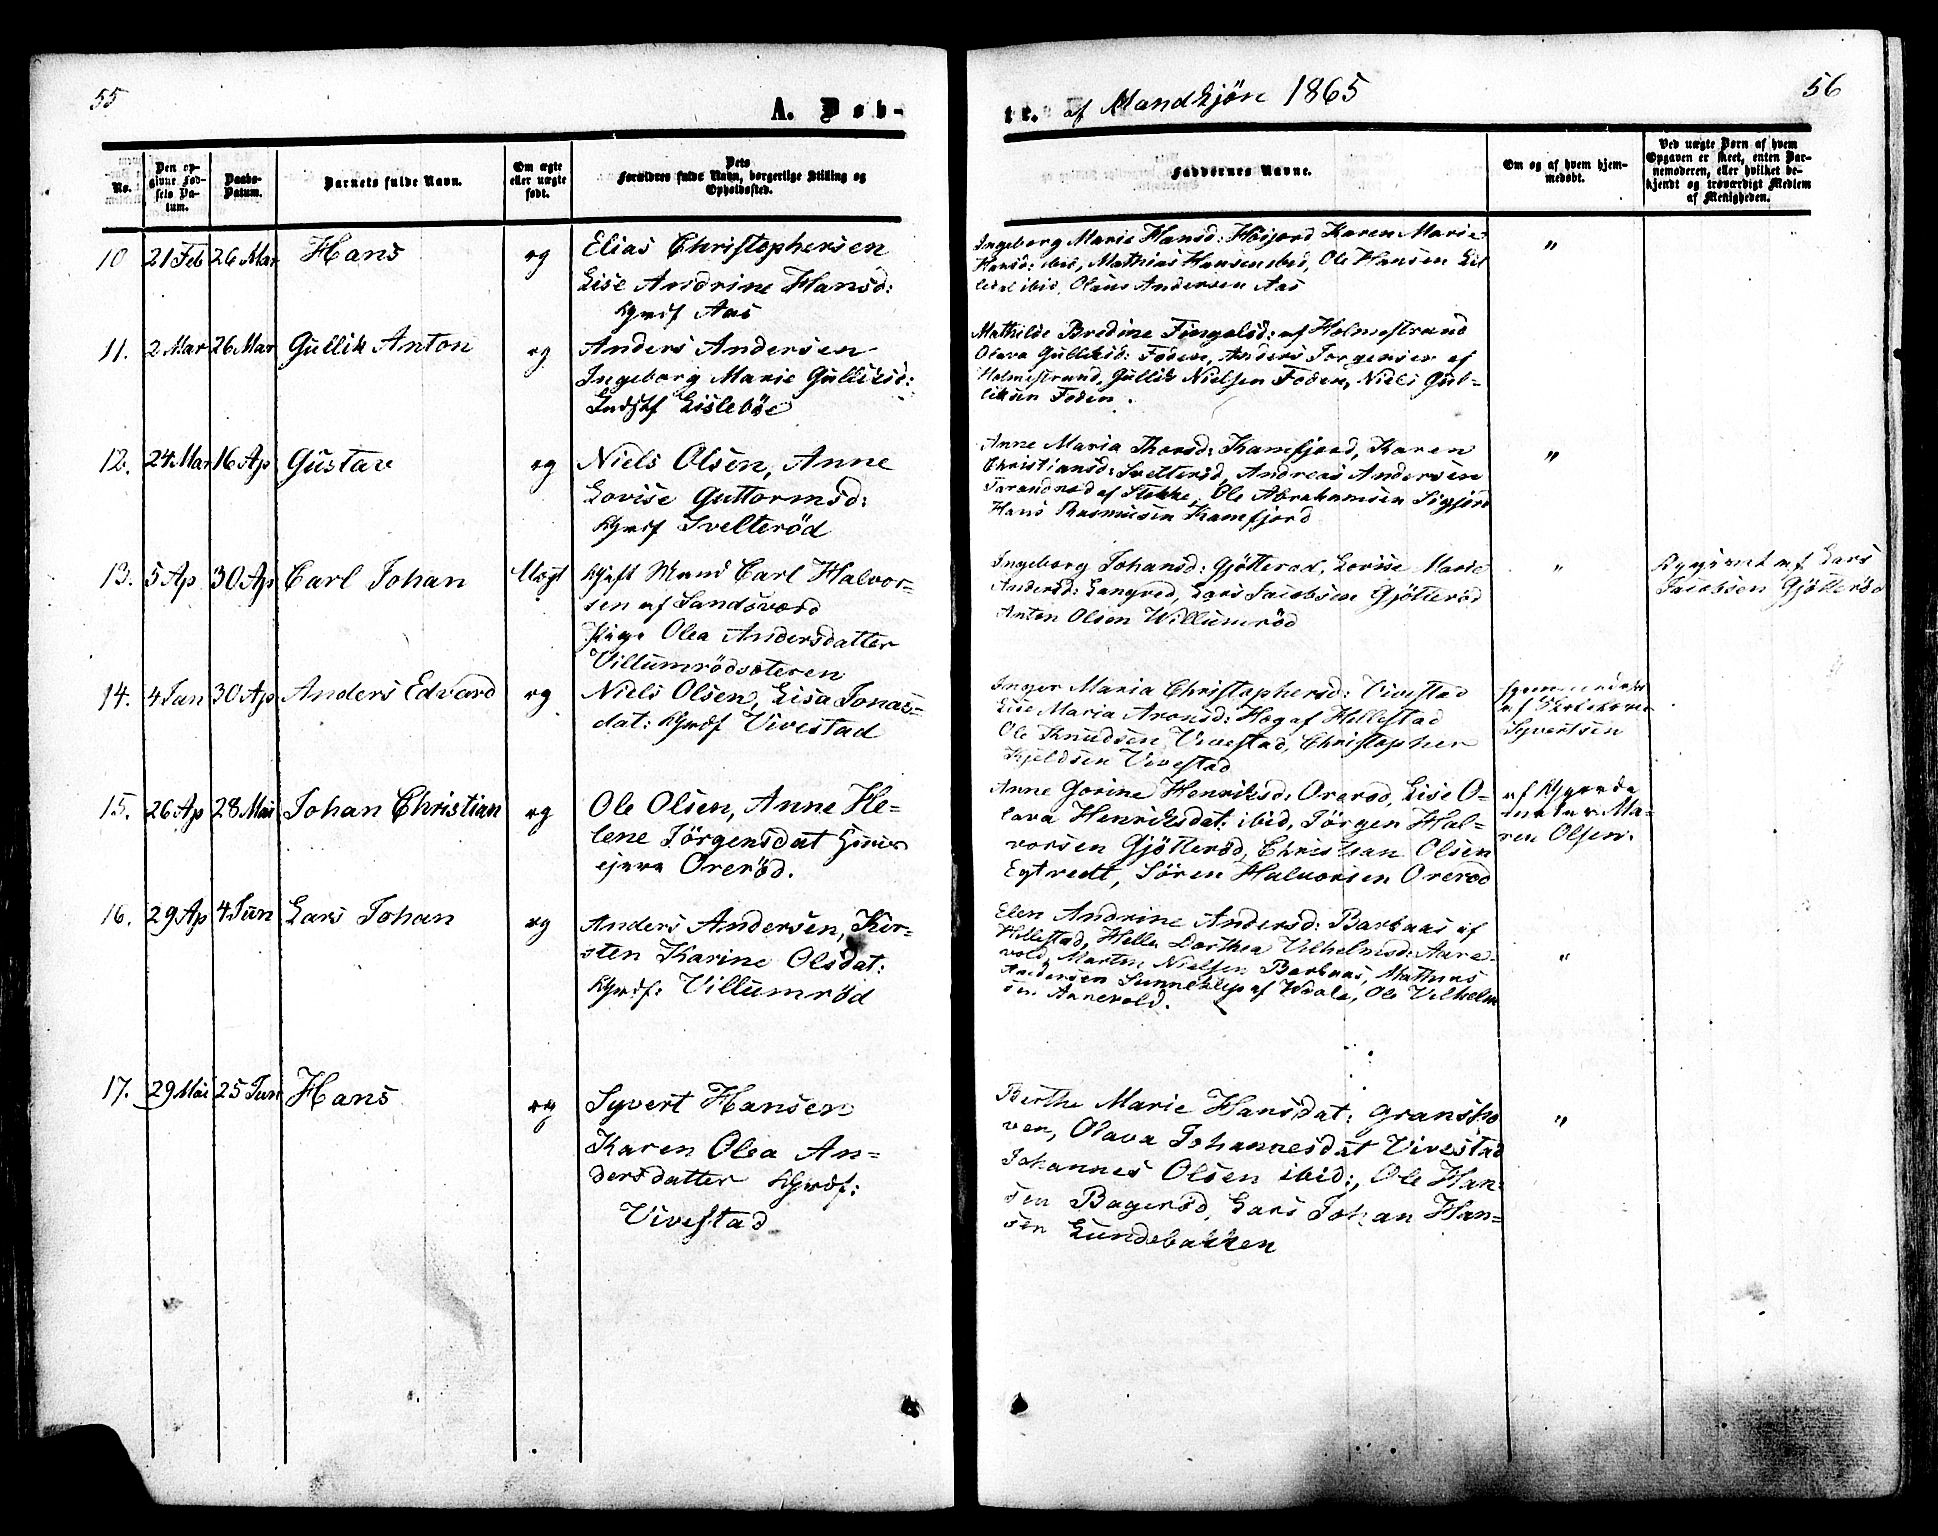 55
A. Døb-
te. af Mandkjön 1865
56
No.
Den op-
givne Fød-
sels Da-
tum.
Daabs-
Datum.
Barnets fulde Navn.
Om ægte
eller uægte
født.
Dets
Forældres fulde Navn, borgerlige Stilling og
Opholdssted.
Faddernes Navne.
Om og af hvem hjem-
medøbt.
Ved uægte Børn af hvem
Opgaven er skeet, enten Bar-
nemoderen, eller hvilket be-
kjendt og troværdigt Medlem
af Menigheden.
10 21 Feb 26 Mar Hans æg
Elias Christophersen
Lise Andrine Hansd:
Aas
Ingeborg Marie Hansd: Höijord Karen Marie
Hansd: ibid, Mathias Hansen ibid, Ole Hansen
ibid, Olaus Andersen Aas
"
11. 2 Mar 26 Mar Gullik Anton æg
Anders Andersen
Ingeborg Marie Gulliksd:
Lislebøe
Mathilde Bredine af Holmestrand
Olava Gulliksd: Foden, Anders Jorgensen af
Holmestrand, Gullik Nielsen Foden, Niels Gul-
liksen Foden.
12. 24 Mar 16 Ap Gustav æg
Niels Olsen, Anne
Lovise Guttormsd:
Svelteröd
Anne Maria Thorsd: Kamfjord, Karen
Christiansd: Svelteröd, Andreas Andersen
af Stokke, Ole Abrahamsen
Hans Rasmusen Kamfjord
"
13. 5 Ap 30 Ap Carl Johan Uægt
Gift Mand Carl Halvor-
sen af Sandsverd
Pige Olea Andersdatter
Villumrödsæteren
Ingeborg Johansd: Gjötteröd, Lovise Marie
Andersd: Langved, Lars Jacobsen Gjötteröd
Anton Olsen Willumröd
"
Opgivet af Lars
Jacobsen Gjötteröd
14. 4 Jan 30 Ap Anders Edvard æg
Niels Olsen, Lisa Jonas-
dat: Vivestad
Inger Maria Christophersd: Vivestad
Lise Maria Aronsd: Hæg af Hillestad
Ole Knudsen Vivestad, Christopher
Kjeldsen Vivestad
hjemmedøbt
af
Syvertsen
15. 26 Ap 28 Mai Johan Christian æg
Ole Olsen, Anne He-
lene Jörgensdat
ejere Oreröd.
Anne Gorine Henriksd: Oreröd, Lise O-
lava Henriksdat: ibid, Jörgen Hal-
vorsen Gjötteröd, Christian Olsen
Egtvedt, Sören Halvorsen Oreröd
af Gjorde
moder Ma-
ren Olsen.
16. 29 Ap 4 Jun Lars Johan æg
Anders Andersen, Kir-
sten Karine Olsdat:
Villumröd
Elen Andrine Andersd: Barkaas af
Hillestad, Helle Dorthea Vilhelmsd: Aane-
vold, Martin Nielsen Barkaas, Mathias
Andersen af Vaale, Ole Vilhelm
sen Aanevold.
"
17. 29 Mai 25 Jun Hans æg
Syvert Hansen
Karen Olea An-
dersdatter
Vivestad
Berthe Marie Hansdat: Gransko
ven, Olava Johannesdat Vivestad
Johannes Olsen ibid:, Ole Han-
sen Bageröd, Lars Johan Han-
sen Lundebakken
"